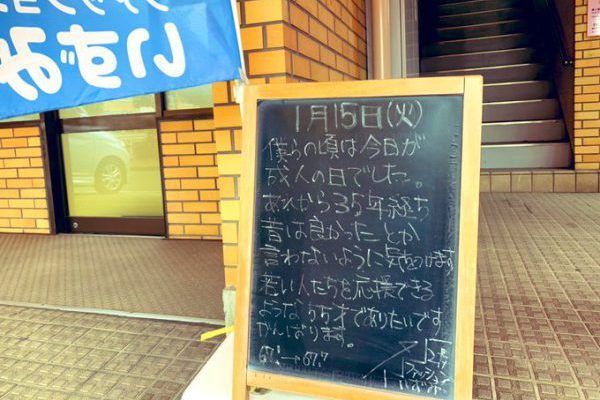 いずみ
1月15日(火)
僕らの頃は今日が
成人の日でした。
あれから35年経ち
昔は良かったとか
言わないように気をつけます
若い人たちを応援できる
ような55才でありたいです
がんばります。
67.1→67.7